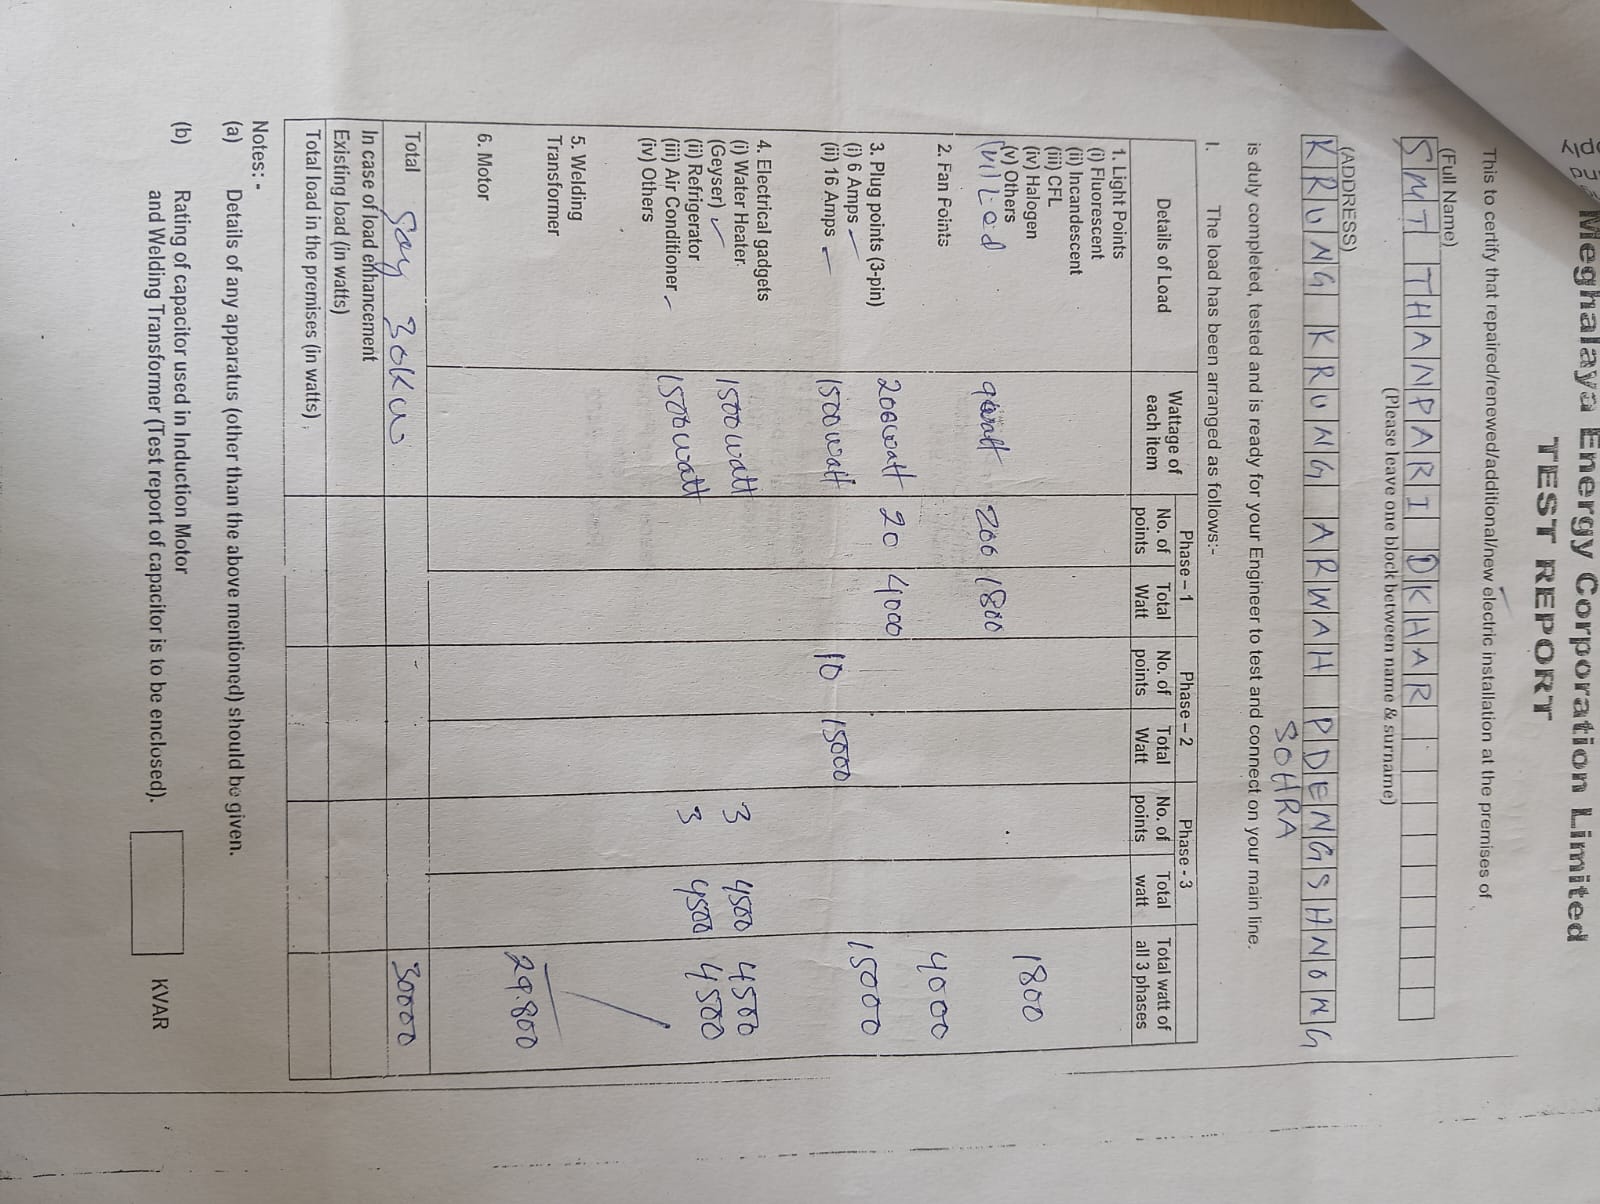 Meghalaya Energy Corporation Limited
TEST REPORT
This to certify that repaired/renewed/additional/new electric installation at the premises of
(Full Name)
SMT THANPARI DKHAR
(Please leave one block between name & surname)
(ADDRESS)
KRUNG KRUNG ARWAH PDENGSHNONG
SOHRA
is duly completed, tested and is ready for your Engineer to test and connect on your main line.
I. The load has been arranged as follows:-
Details of Load Wattage of each item Phase – 1 Phase – 2 Phase - 3 Total watt of all 3 phases
No. of points Total Watt No. of points Total Watt No. of points Total watt
1. Light Points
(i) Fluorescent
(ii) Incandescent
(iii) CFL
(iv) Halogen
(v) Others 1800
(vi) Led 9watt 200 1800
2. Fan Points 4000
3. Plug points (3-pin)
(i) 6 Amps 200watt 20 4000
(ii) 16 Amps 1500watt 10 15000 15000
4. Electrical gadgets
(i) Water Heater.
(Geyser) 1500watt 3 4500 4500
(ii) Refrigerator
(iii) Air Conditioner 1500watt 3 4500 4500
(iv) Others
5. Welding
Transformer
29.800
6. Motor
Total Say 30Kw 30000
In case of load enhancement
Existing load (in watts)
Total load in the premises (in watts)
Notes: -
(a) Details of any apparatus (other than the above mentioned) should be given.
(b) Rating of capacitor used in Induction Motor
and Welding Transformer (Test report of capacitor is to be enclosed). KVAR